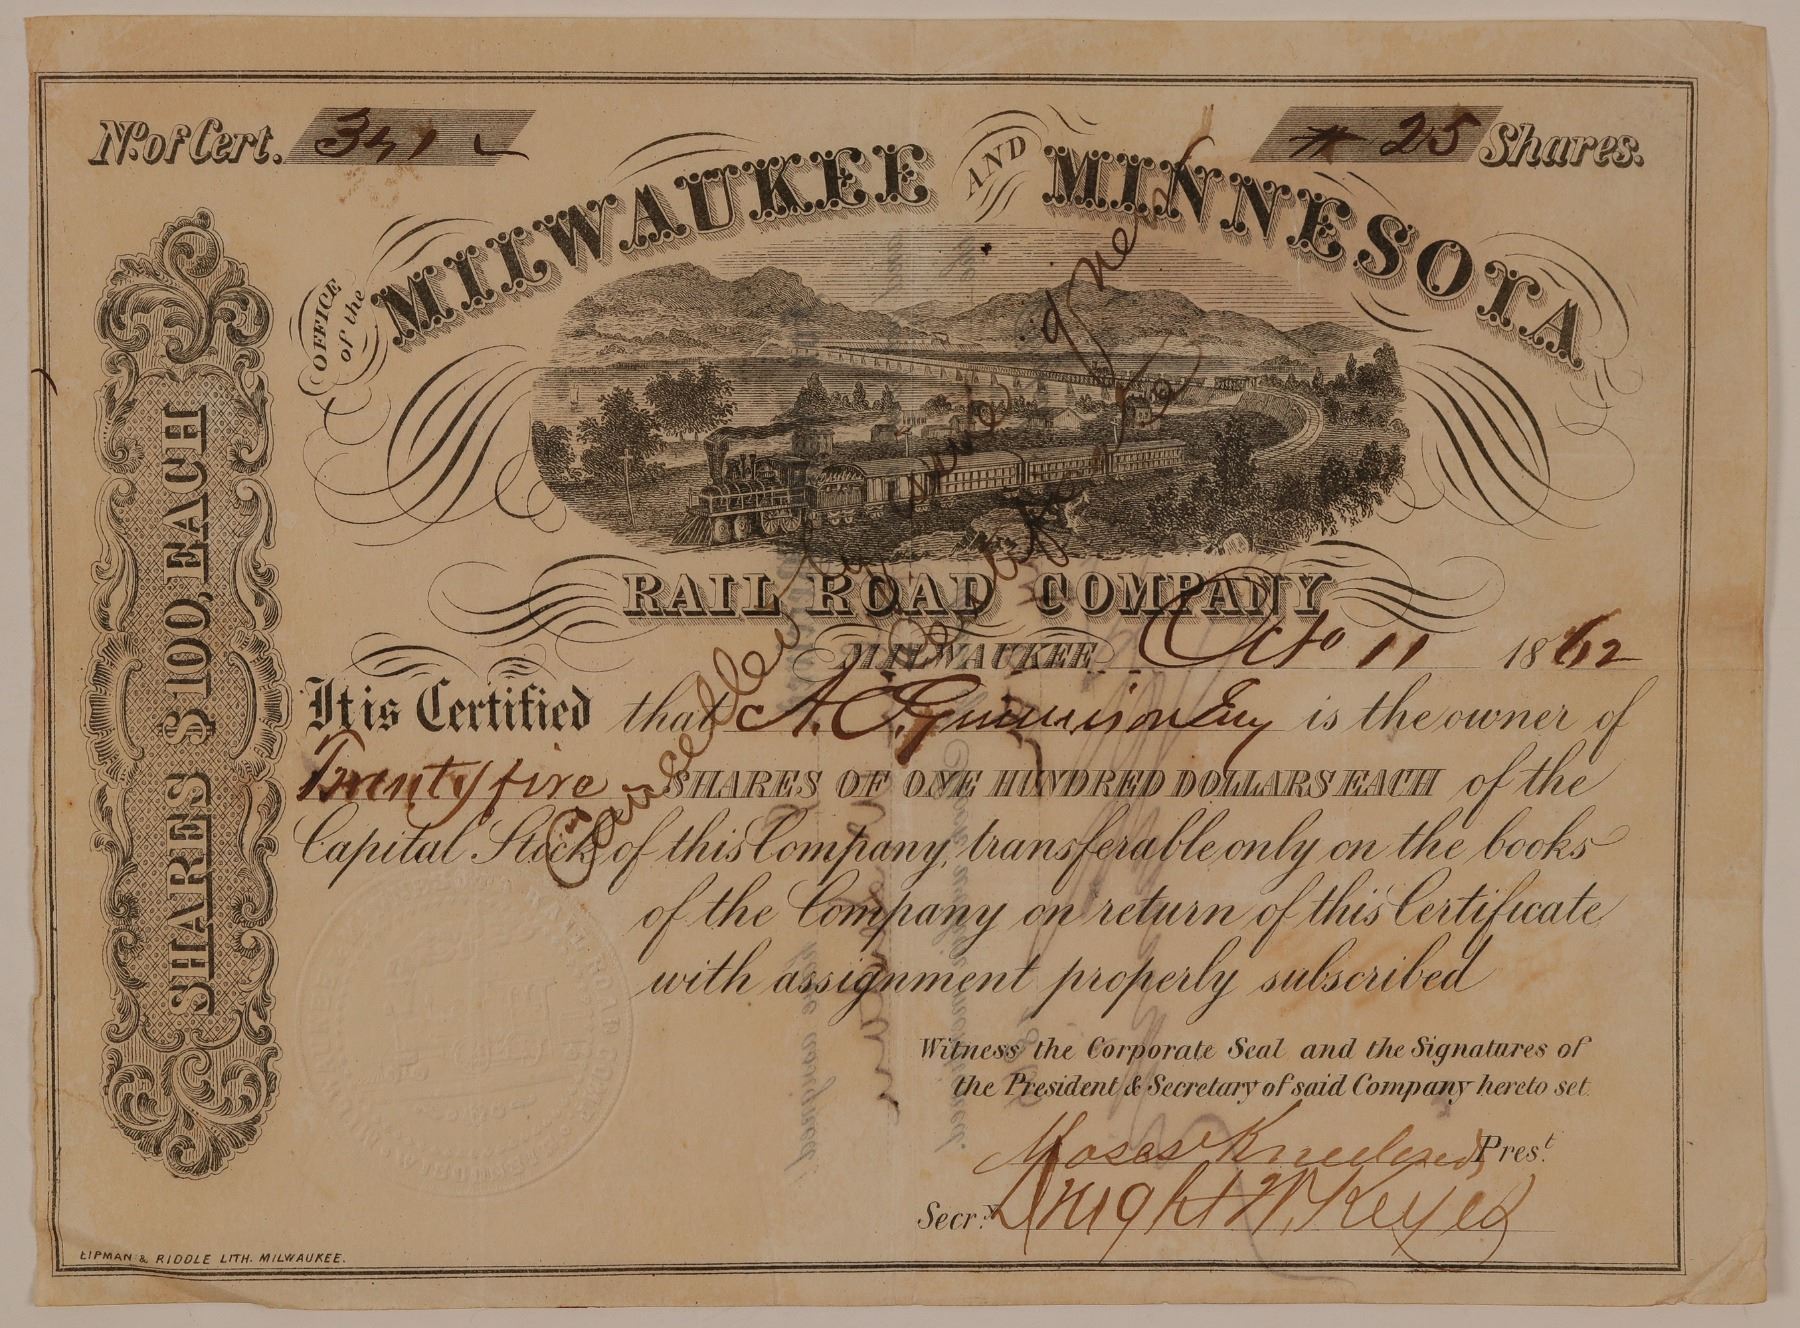 No. of Cert. 341
25 Shares.
OFFICE of the
MILWAUKEE AND MINNESOTA
RAIL ROAD COMPANY
MILWAUKEE Octo 11 1862
It is Certified that A. C. Gunnison Esq is the owner of
Twenty five SHARES OF ONE HUNDRED DOLLARS EACH of the
Capital Stock of this Company, transferable only on the books
of the Company on return of this Certificate
with assignment properly subscribed
Witness the Corporate Seal and the Signatures of
the President & Secretary of said Company hereto set.
Moses Kneeland Prest.
Secry. Dwight W. Keyes
SHARES $100, EACH
Cancelled by
LIPMAN & RIDDLE LITH. MILWAUKEE.